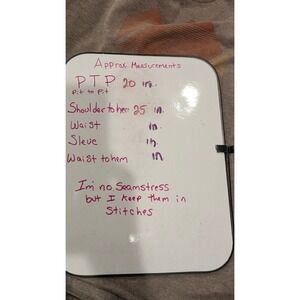 Approx Measurements
PTP 20 in.
Pit to Pit
Shoulder to hem 25 in.
Waist in.
Sleve in.
Waist to hem in
I'm no Seamstress
but I keep them in
Stitches